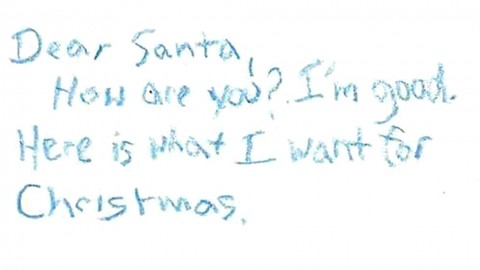 Dear Santa,
How are you? I'm good.
Here is what I want for
Christmas.